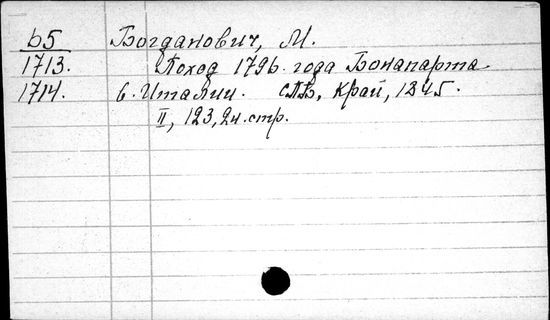 b5 Богданович, М.
1713. Поход 1796 года Бонапарта
1714. в Италии. СПБ, Край, 1845.
II, 123, 2н.стр.